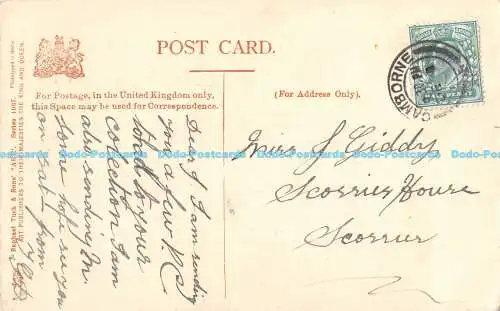 POST CARD.
For Postage, in the United Kingdom only,
this Space may be used for Correspondence.
(For Address Only).
CAMBORNE
Dear J. I am sending
you a few P.Cs
to your
collection I am
also sending M.
some hope see you
on Sat. from
Miss J. Giddy
Scorrier House
Scorrier
Raphael Tuck & Sons'
ART PUBLISHERS TO THEIR MAJESTIES THE KING AND QUEEN.
Dodo-Postcards Dodo-Postcards Dodo-Postcards Dodo-Postcards Dodo-Postcards Dodo-Postcards